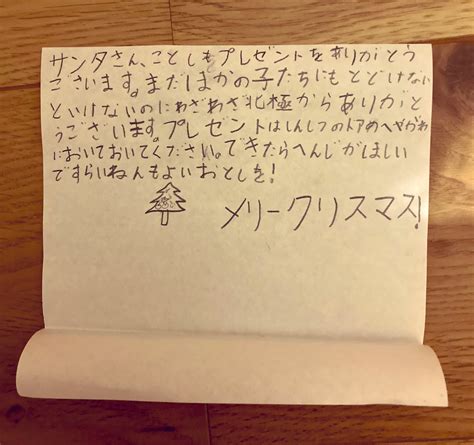 サンタさん、ことしもプレゼントをありがとう
ございます。まだほかの子たちにもとどけない
といけないのにわざわざ北極からありがと
うございます。プレゼントはしんしつのドアのへやがわ
においておいてください。できたらへんじがほしい
ですらいねんもよいおとしを!
メリークリスマス!